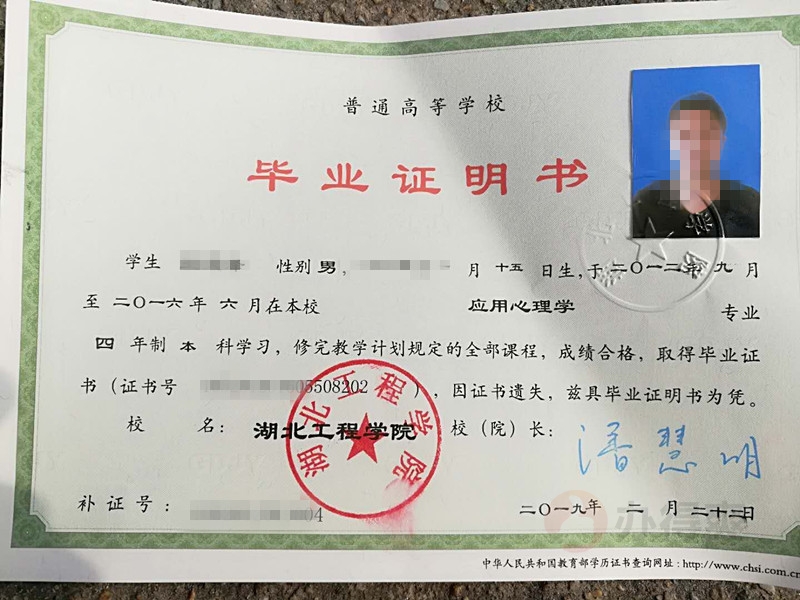 普通高等学校
毕业证明书
学生 性别男, 月十五日生,于二〇一二年九月
至二〇一六年六月在本校 应用心理学 专业
四年制本科学习,修完教学计划规定的全部课程,成绩合格,取得毕业证
书(证书号 03508202 ),因证书遗失,兹具毕业证明书为凭。
校名: 湖北工程学院 校(院)长: 潘慧明
湖北工程学院
补证号: 04 二〇一九年二月二十二日
中华人民共和国教育部学历证书查询网址:http://www.chsi.com.cn